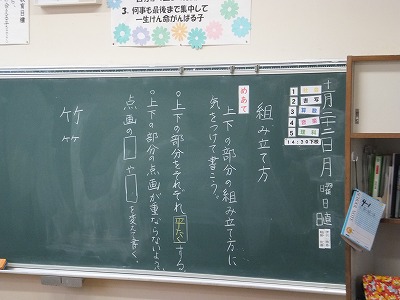 3. 何事も最後まで集中して
一生けん命がんばる子
十月二十二日月曜日
1
2 書写
3 算数
4 音楽
5 理科
14:30下校
組み立て方
めあて
上下の部分の組み立て方に
気をつけて書こう。
○上下の部分をそれぞれ平たくする。
○上下の部分の点画が重ならないよう、
点画の□や□を変えて書く。
竹